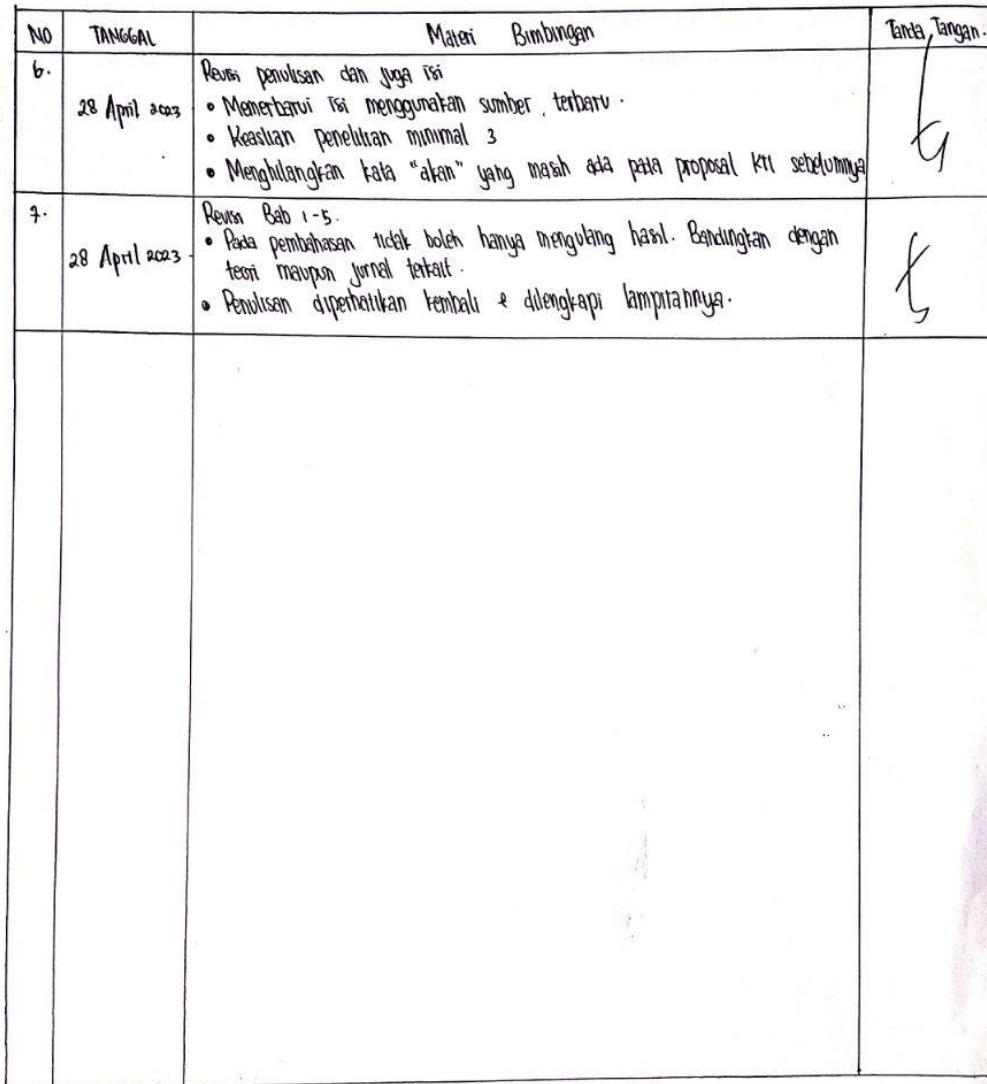 NO TANGGAL Materi Bimbingan Tanda Tangan.
6. 28 April 2023 Revisi penulisan dan juga isi
• Memerbarui isi menggunakan sumber terbaru.
• Keaslian penelitian minimal 3
• Menghilangkan kata "akan" yang masih ada pada proposal KTI sebelumnya
7. 28 April 2023 Revisi Bab 1-5.
• Pada pembahasan tidak boleh hanya mengulang hasil. Bandingkan dengan
teori maupun jurnal terkait.
• Penulisan diperhatikan kembali & dilengkapi lampirannya.